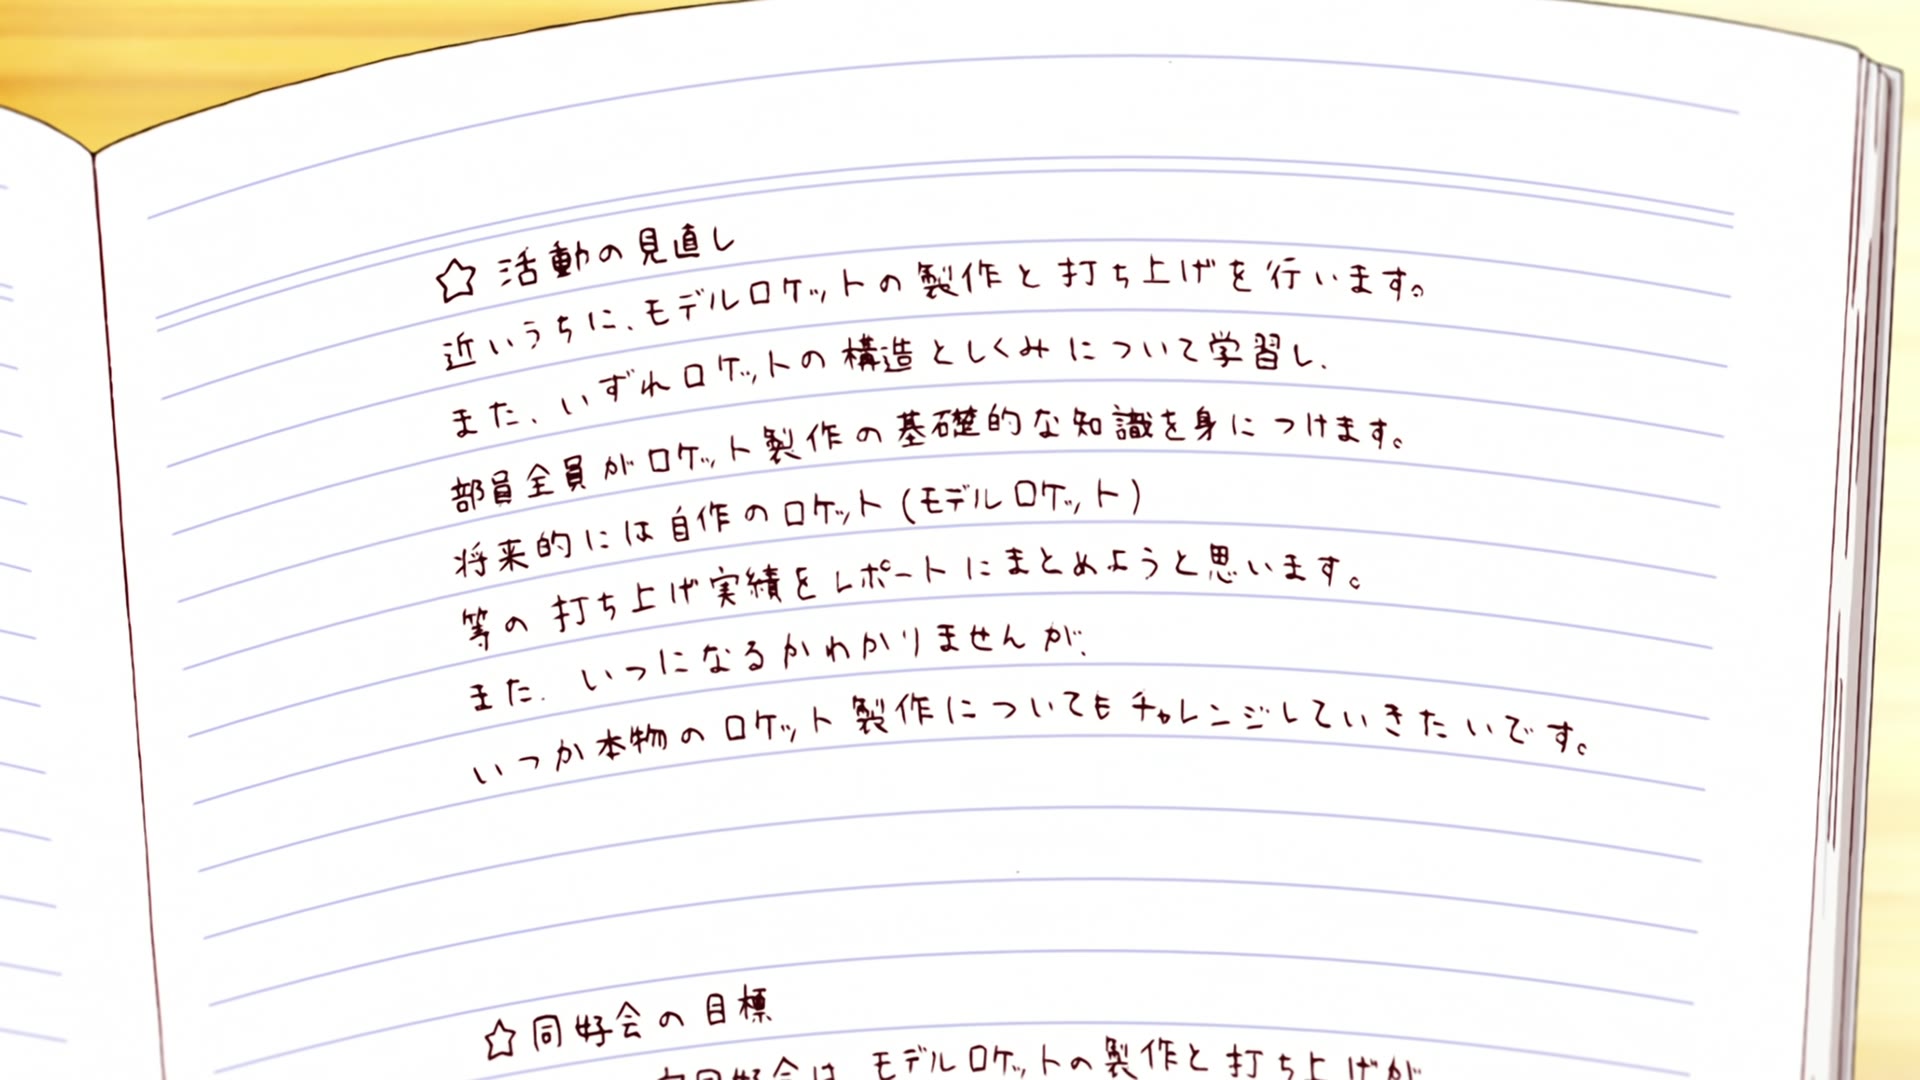 ☆活動の見直し
近いうちに、モデルロケットの製作と打ち上げを行います。
また、いずれロケットの構造としくみについて学習し、
部員全員がロケット製作の基礎的な知識を身につけます。
将来的には自作のロケット(モデルロケット)
等の打ち上げ実績をレポートにまとめようと思います。
また、いつになるかわかりませんが、
いつか本物のロケット製作についてもチャレンジしていきたいです。
☆同好会の目標
同好会は、モデルロケットの製作と打ち上げが